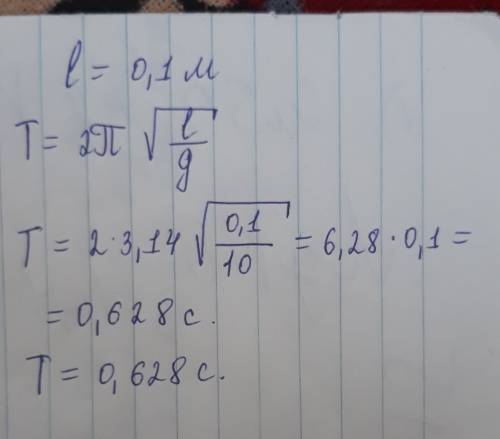 l = 0,1 м
T = 2π √(l/g)
T = 2·3,14 √(0,1/10) = 6,28·0,1 =
= 0,628 с.
T = 0,628 с.